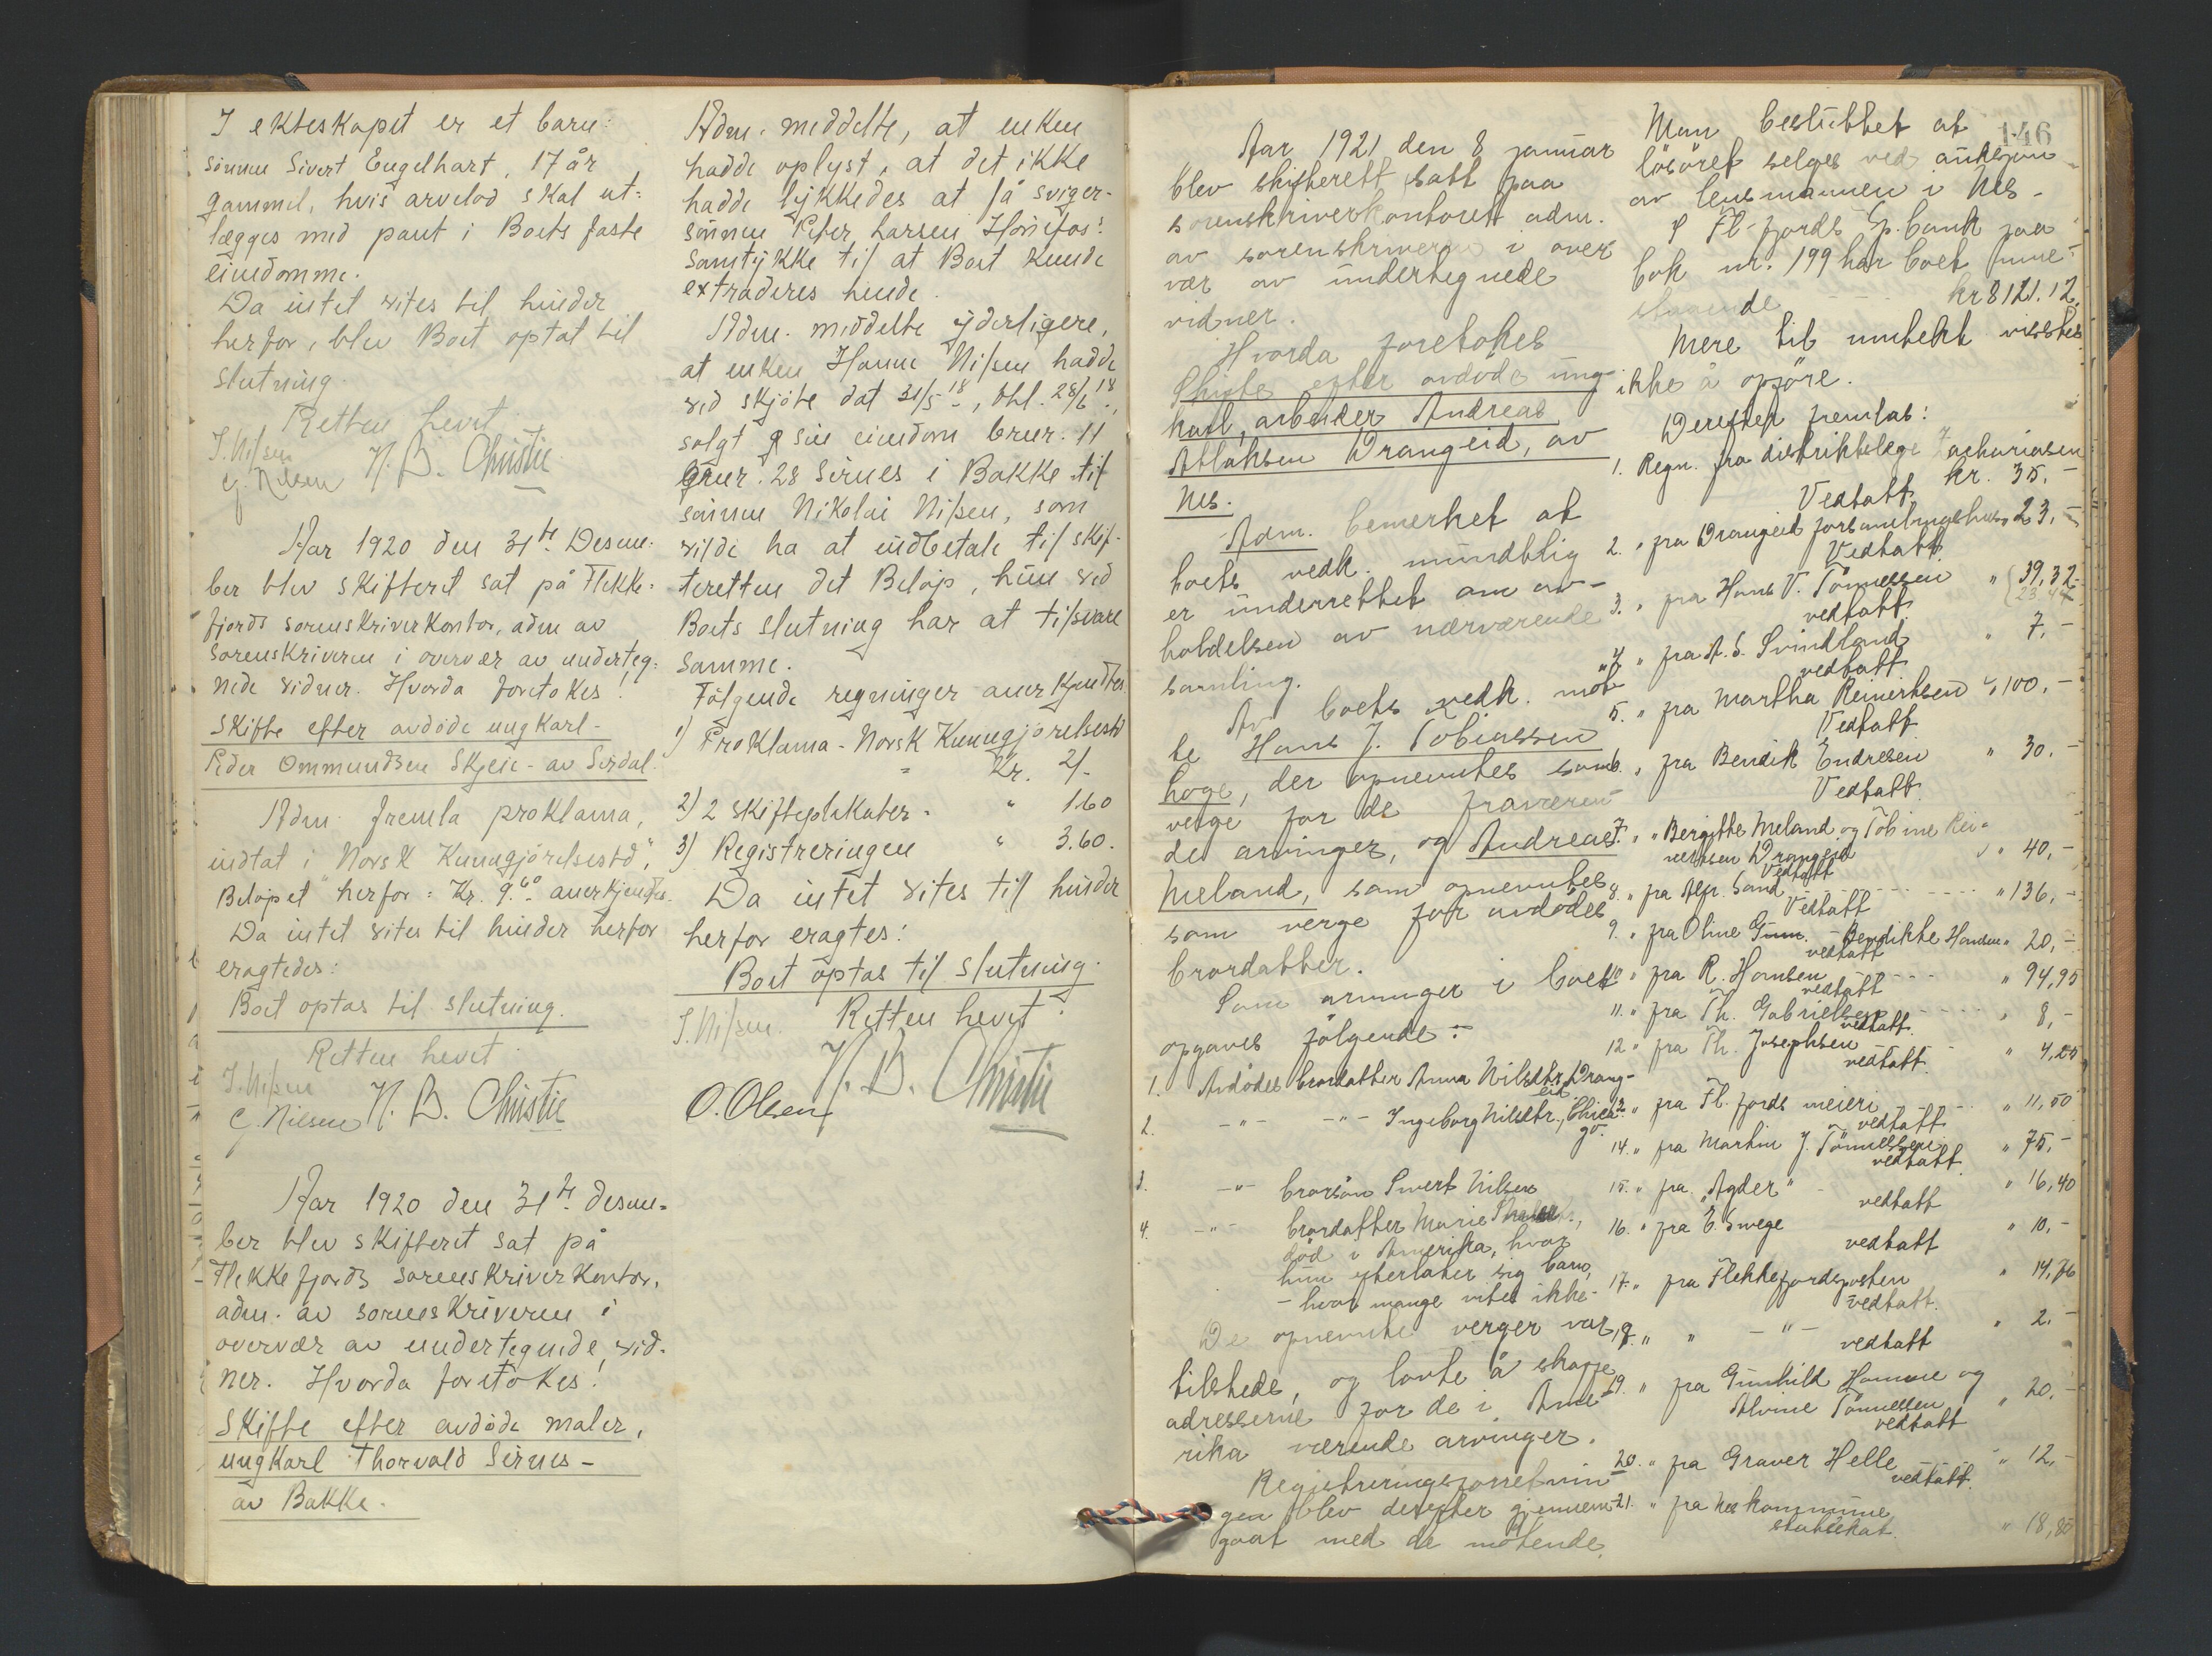 I ekteskapet er et barn:
sönnen Sivert Engelhart, 17 år
gammel, hvis arvelod skal ut=
lægges med pant i Boets faste
eiendomme.
Da intet vites til hinder
herfor, blev Boet optat til
slutning.
Retten hevet
J. Nilsen
C. Nilsen N. B. Christie
Aar 1920 den 31te Desem=
ber blev skifteret sat på Flekke=
fjords sorenskriverkontor, adm av
sorenskriveren i overvær av underteg=
nede vidner. Hvorda foretokes!
Skifte efter avdöde ungkarl -
Peder Ommundsen Skjeie - av Sirdal.
Adm. fremla proklama,
indtat i "Norsk Kunngjörelsestd",
Belöpet herfor = Kr. 9.60 anerkjendtes.
Da intet vites til hinder herfor
eragtedes:
Boet optas til slutning.
Retten hevet
J. Nilsen
C. Nilsen N. B. Christie
Aar 1920 den 31te desem=
ber blev skifteret sat på
Flekkefjords sorenskriverkontor,
adm. av sorenskriveren i
overvær av undertegnede vid=
ner. Hvorda foretokes!
Skifte efter avdöde maler,
ungkarl Thorvald Sirnes -
av Bakke.
Adm. meddelte, at enken
hadde oplyst, at det ikke
hadde lykkedes at få sviger-
sönnen Peter Larsen Hönefos'
samtykke til at Boet kunde
extraderes hende.
Adm. meddelte yderligere,
at enken Hanne Nilsen hadde
ved skjöte dat 31/5 18, thl. 28/6 18,
solgt sin eiendom brnr. 11
gnr. 28 Sirnes i Bakke til
sönnen Nikolai Nilsen, som
vilde ha at indbetale til skif-
teretten det Belöp, hun ved
Boets slutning har at tilsvare
samme.
Fölgende regninger anerkjendtes
1) Proklama - Norsk Kunngjörelsestd
Kr. 2/-
2) 2 skifteplakater - " 1.60
3) Registreringen " 3.60.
Da intet vites til hinder
herfor eragtes:
Boet optas til slutning.
J. Nilsen. Retten hevet.
O. Olsen N. B. Christie
146
Aar 1921 den 8 januar
blev skifterett satt paa
sorenskriverkontoret adm.
av sorenskriveren i over
vær av undertegnede
vidner.
Hvorda foretokes
Skifte efter avdöde ung-
karl, arbeider Andreas
Atlaksen Drangeid, av
Nes.
Adm. bemerket at
boets vedk. mundtlig
er underrettet om av-
holdelsen av nærværende
samling.
Av boets vedk. möt
te Hans J. Tobiassen
Loge, der opnevntes som
verge for de fraværen
de arvinger, og Andreas
Meland, som opnevntes
som verge for avdödes
brordatter.
Som arvinger i boet
opgaves fölgende:
1. Avdödes brordatter Anna Nilsdtr. Drang-
eid
2. -"- -"- Ingeborg Nilsdtr., Chica-
go.
3. -"- brorsön Sivert Nilsen
4. -"- brordatter Marie
död i Amerika, hvor
hun efterlater sig barn,
- hvor mange vites ikke -
De opnevnte verger var
tilstede, og lovte å skaffe
adresserne for de i Ame
rika værende arvinger.
Registreringsforretnin
gen blev derefter gjennem-
gaat med de mötende.
Man besluttet at
lösöret selges ved auksjon
av lensmannen i Nes -
I Fl-fjords Sp.bank paa
bok nr. 199 har boet inne-
staaende - - - kr 8121.12.
Mere til inntekt visstes
ikke å opföre.
Derefter fremlas:
1. Regn. fra distriktslæge Zachariasen
kr. 35.-
Vedtatt
2. " fra Drangeid forsamlingshus " 23.-
Vedtatt
3. " fra Hans V. Tönnessen " 39,32
vedtatt
4. " fra A. S. Svindland " 7.-
vedtatt
5. " fra Martha Reinertsen " 100.-
Vedtatt
6. " fra Bendik Endresen " 30.-
Vedtatt
7. " " Bergitte Meland og Tobine Rei-
nertsen Drangeid " 40,-
Vedtatt
8. " fra Alfr. Sand - - - - " 136,-
Vedtatt
9. " fra Oline - Bendikte Hansen " 20,-
vedtatt
10 " fra R. Hansen - - - " 94,95
vedtatt
11. " fra Th. Gabrielsen - - - " 8,-
vedtatt.
12 " fra Th. Josephsen - " 4,25
vedtatt
13 " fra Fl.fjords meieri - - - " 11,50
vedtatt
14. " fra Martin J. Tönnessen " 75,-
vedtatt.
15. " fra "Agder" - " 16,40
vedtatt
16. " fra E. Svege " 10,-
vedtatt
17. " fra Flekkefjordsposten " 14,76
vedtatt.
18. " " -"- " 2.-
vedtatt
19. " fra Gunhild Homme og
Alvine Tönnessen " 20.-
vedtatt
20. " fra Graver Helle " 12,-
vedtatt.
21. " fra Nes kommune
statsskat. " 18,80